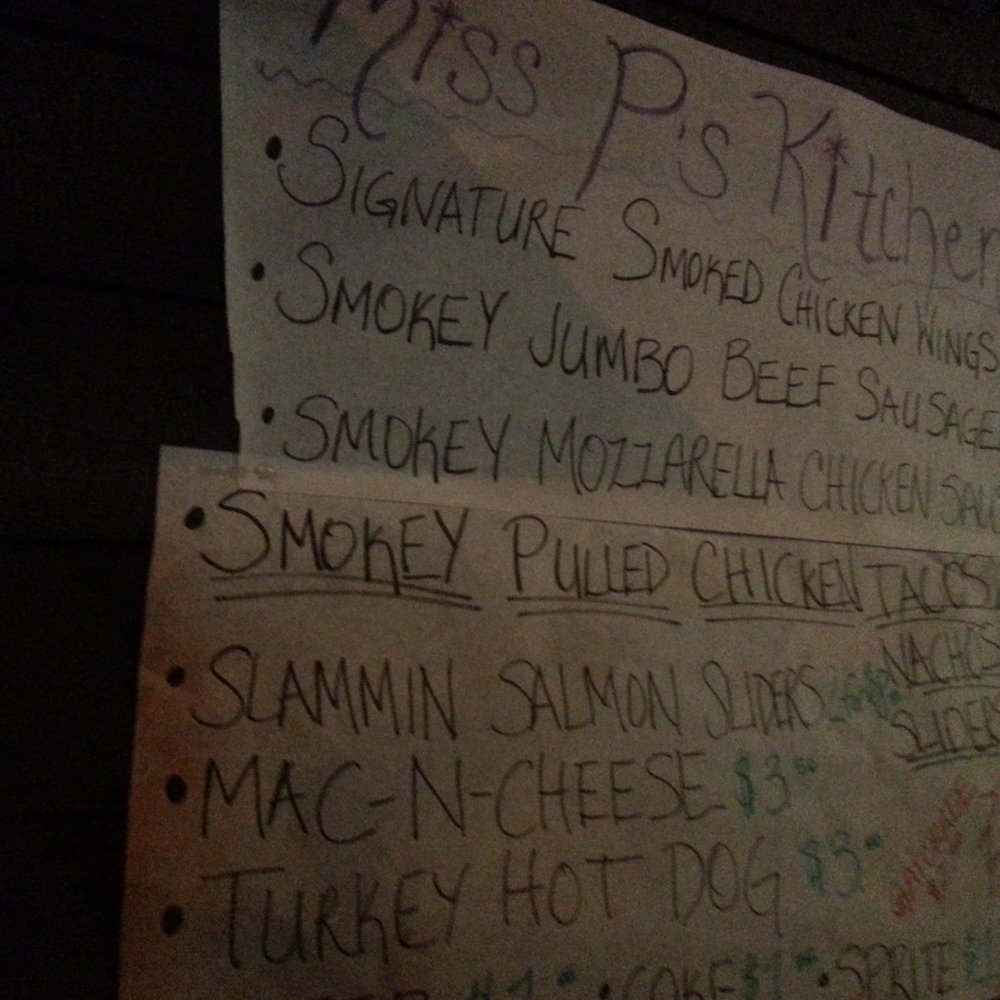 Miss P's Kitchen
• SIGNATURE SMOKED CHICKEN WINGS
• SMOKEY JUMBO BEEF SAUSAGE
• SMOKEY MOZZARELLA CHICKEN SAU
• SMOKEY PULLED CHICKEN TACOS
NACHOS
SLIDERS
• SLAMMIN SALMON SLIDERS
• MAC-N-CHEESE $3.00
• TURKEY HOT DOG $3.00
$1.00 • COKE $1.00 • SPRITE $1